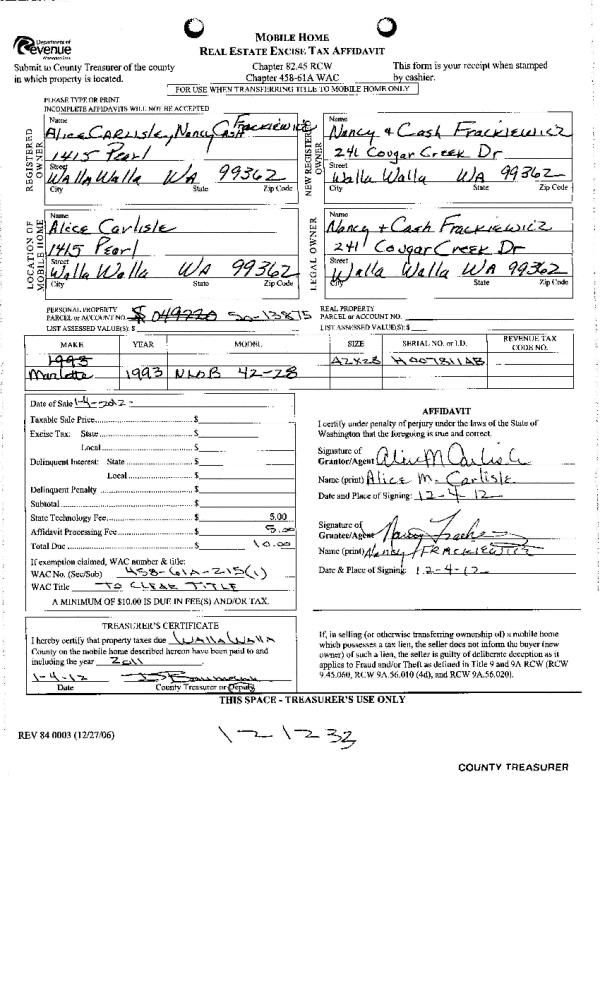 Department of
Revenue
Washington State
MOBILE HOME
REAL ESTATE EXCISE TAX AFFIDAVIT
Submit to County Treasurer of the county
in which property is located.
Chapter 82.45 RCW
Chapter 458-61A WAC
This form is your receipt when stamped
by cashier.
FOR USE WHEN TRANSFERRING TITLE TO MOBILE HOME ONLY
PLEASE TYPE OR PRINT
INCOMPLETE AFFIDAVITS WILL NOT BE ACCEPTED
REGISTERED OWNER
Name
Alice CARLISLE, Nancy Cash Frackiewicz
1415 Pearl
Street
Walla Walla WA 99362
City State Zip Code
NEW REGISTERED OWNER
Name
Nancy + Cash Frackiewicz
241 Cougar Creek Dr
Street
Walla Walla WA 99362
City State Zip Code
LOCATION OF MOBILE HOME
Name
Alice Carlisle
1415 Pearl
Street
Walla Walla WA 99362
City State Zip Code
LEGAL OWNER
Name
Nancy + Cash Frackiewicz
241 Cougar Creek Dr
Street
Walla Walla WA 99362
City State Zip Code
PERSONAL PROPERTY
PARCEL or ACCOUNT NO. 50-13875
LIST ASSESSED VALUE(S): $
REAL PROPERTY
PARCEL or ACCOUNT NO.
LIST ASSESSED VALUE(S): $
MAKE YEAR MODEL SIZE SERIAL NO. or I.D. REVENUE TAX CODE NO.
1993
Marlette 1993 42-28 42X28 H007811AB
Date of Sale 1-4-2012
Taxable Sale Price $
Excise Tax: State $
Local $
Delinquent Interest: State $
Local $
Delinquent Penalty $
Subtotal $
State Technology Fee $ 5.00
Affidavit Processing Fee $ 5.00
Total Due $ 10.00
If exemption claimed, WAC number & title:
WAC No. (Sec/Sub) 458-61A-215(1)
WAC Title TO CLEAR TITLE
A MINIMUM OF $10.00 IS DUE IN FEE(S) AND/OR TAX.
AFFIDAVIT
I certify under penalty of perjury under the laws of the State of
Washington that the foregoing is true and correct.
Signature of
Grantor/Agent Alice M Carlisle
Name (print) Alice M. Carlisle
Date and Place of Signing: 12-4-12
Signature of
Grantee/Agent
Name (print) Nancy FRACKIEWICZ
Date & Place of Signing: 12-4-12
TREASURER'S CERTIFICATE
I hereby certify that property taxes due Walla Walla
County on the mobile home described hereon have been paid to and
including the year 2011.
1-4-12
Date County Treasurer or Deputy
If, in selling (or otherwise transferring ownership of) a mobile home
which possesses a tax lien, the seller does not inform the buyer (new
owner) of such a lien, the seller is guilty of deliberate deception as it
applies to Fraud and/or Theft as defined in Title 9 and 9A RCW (RCW
9.45.060, RCW 9A.56.010 (4d), and RCW 9A.56.020).
THIS SPACE - TREASURER'S USE ONLY
REV 84 0003 (12/27/06)
121233
COUNTY TREASURER